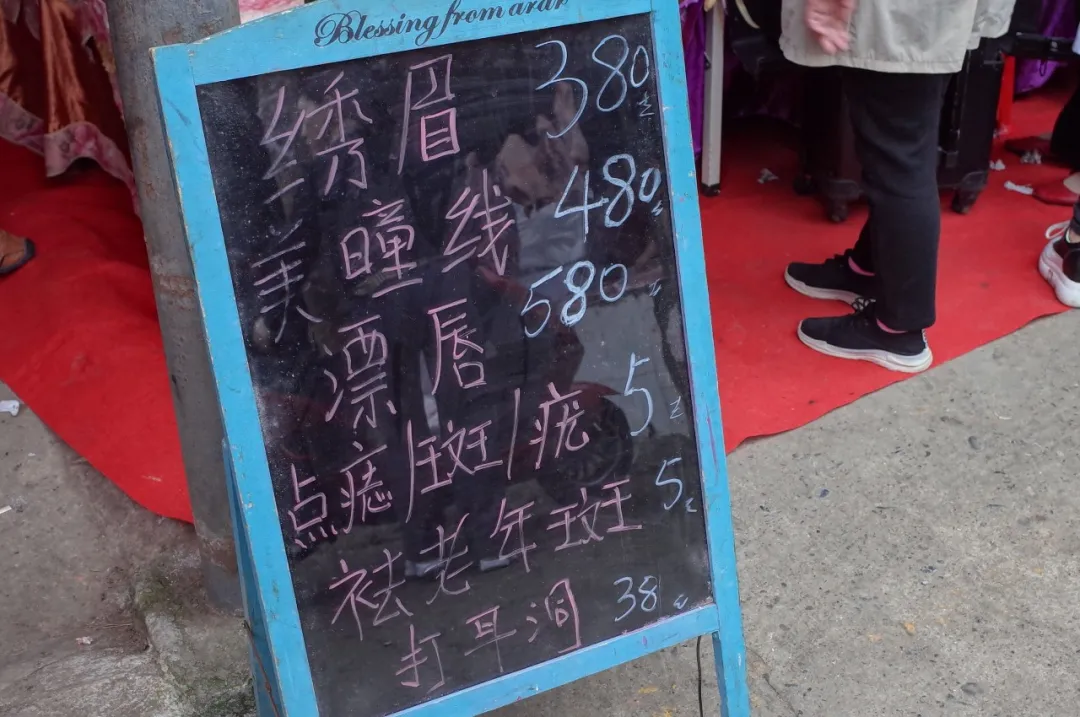 Blessing from
绣眉 380元
美瞳线 480元
漂唇 580元
点痣/斑/疣 5元
祛老年斑 5元
打耳洞 38元